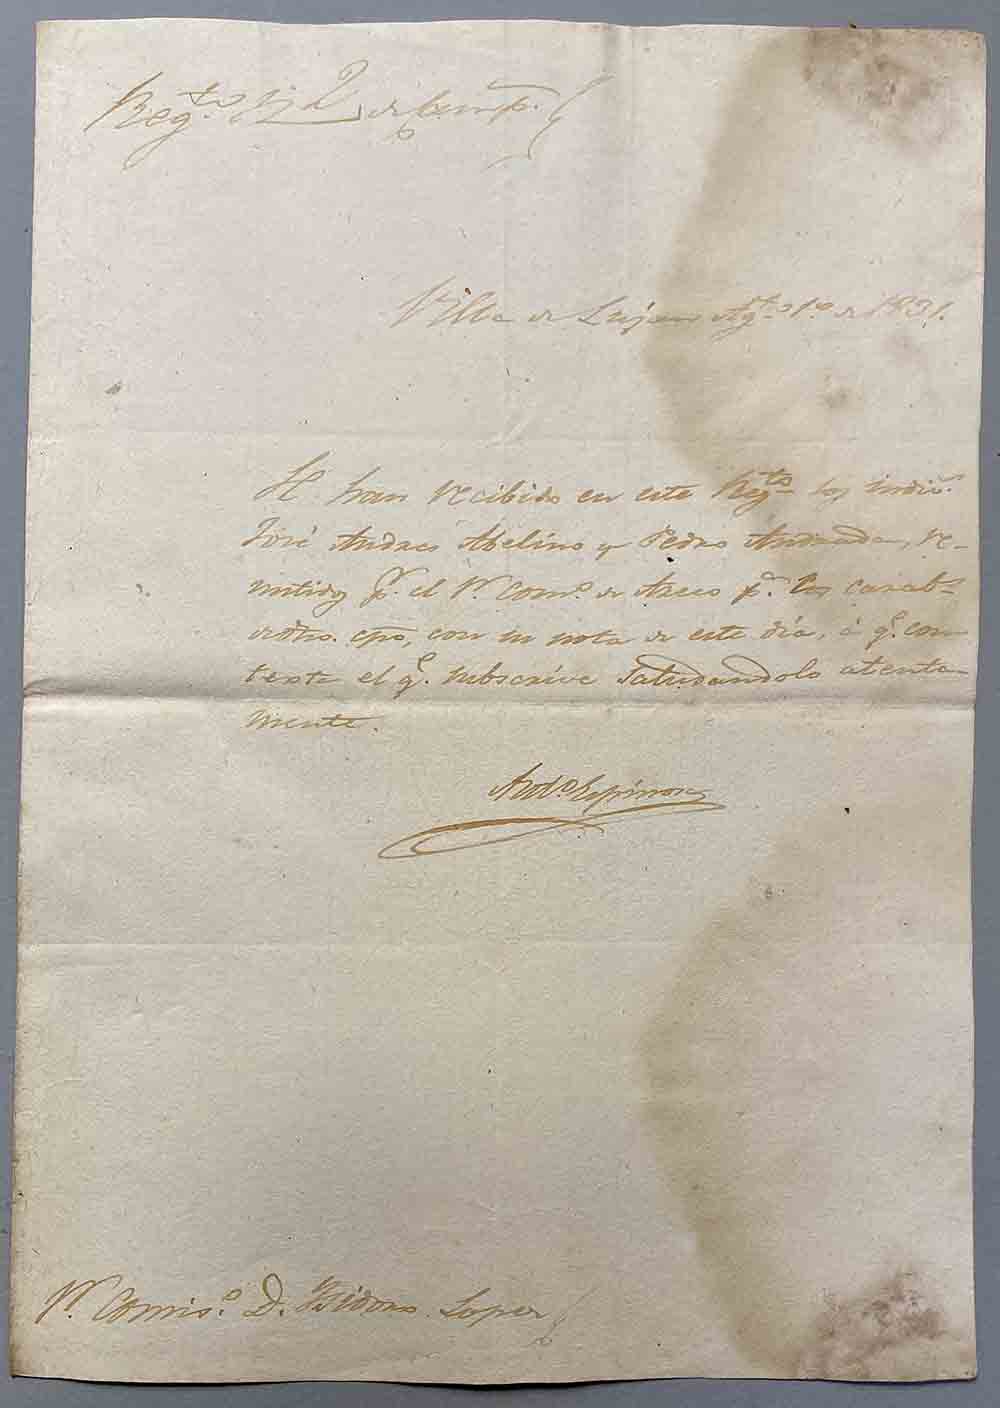 Regto. N 2 de Camp.
Villa de Lujan Agto. 1o. de 1831.
Se han recibido en este Regto. los indivs.
José Andres Abelino y Pedro Andrada, re-
mitidos pr. el Sr. Como. de Areco pa. los
cpo, con su nota de este dia, á q. con-
testa el q. subscrive Saludandolo atenta-
mente.
Espinosa
Sr. Comiso. D. Isidoro Lopez